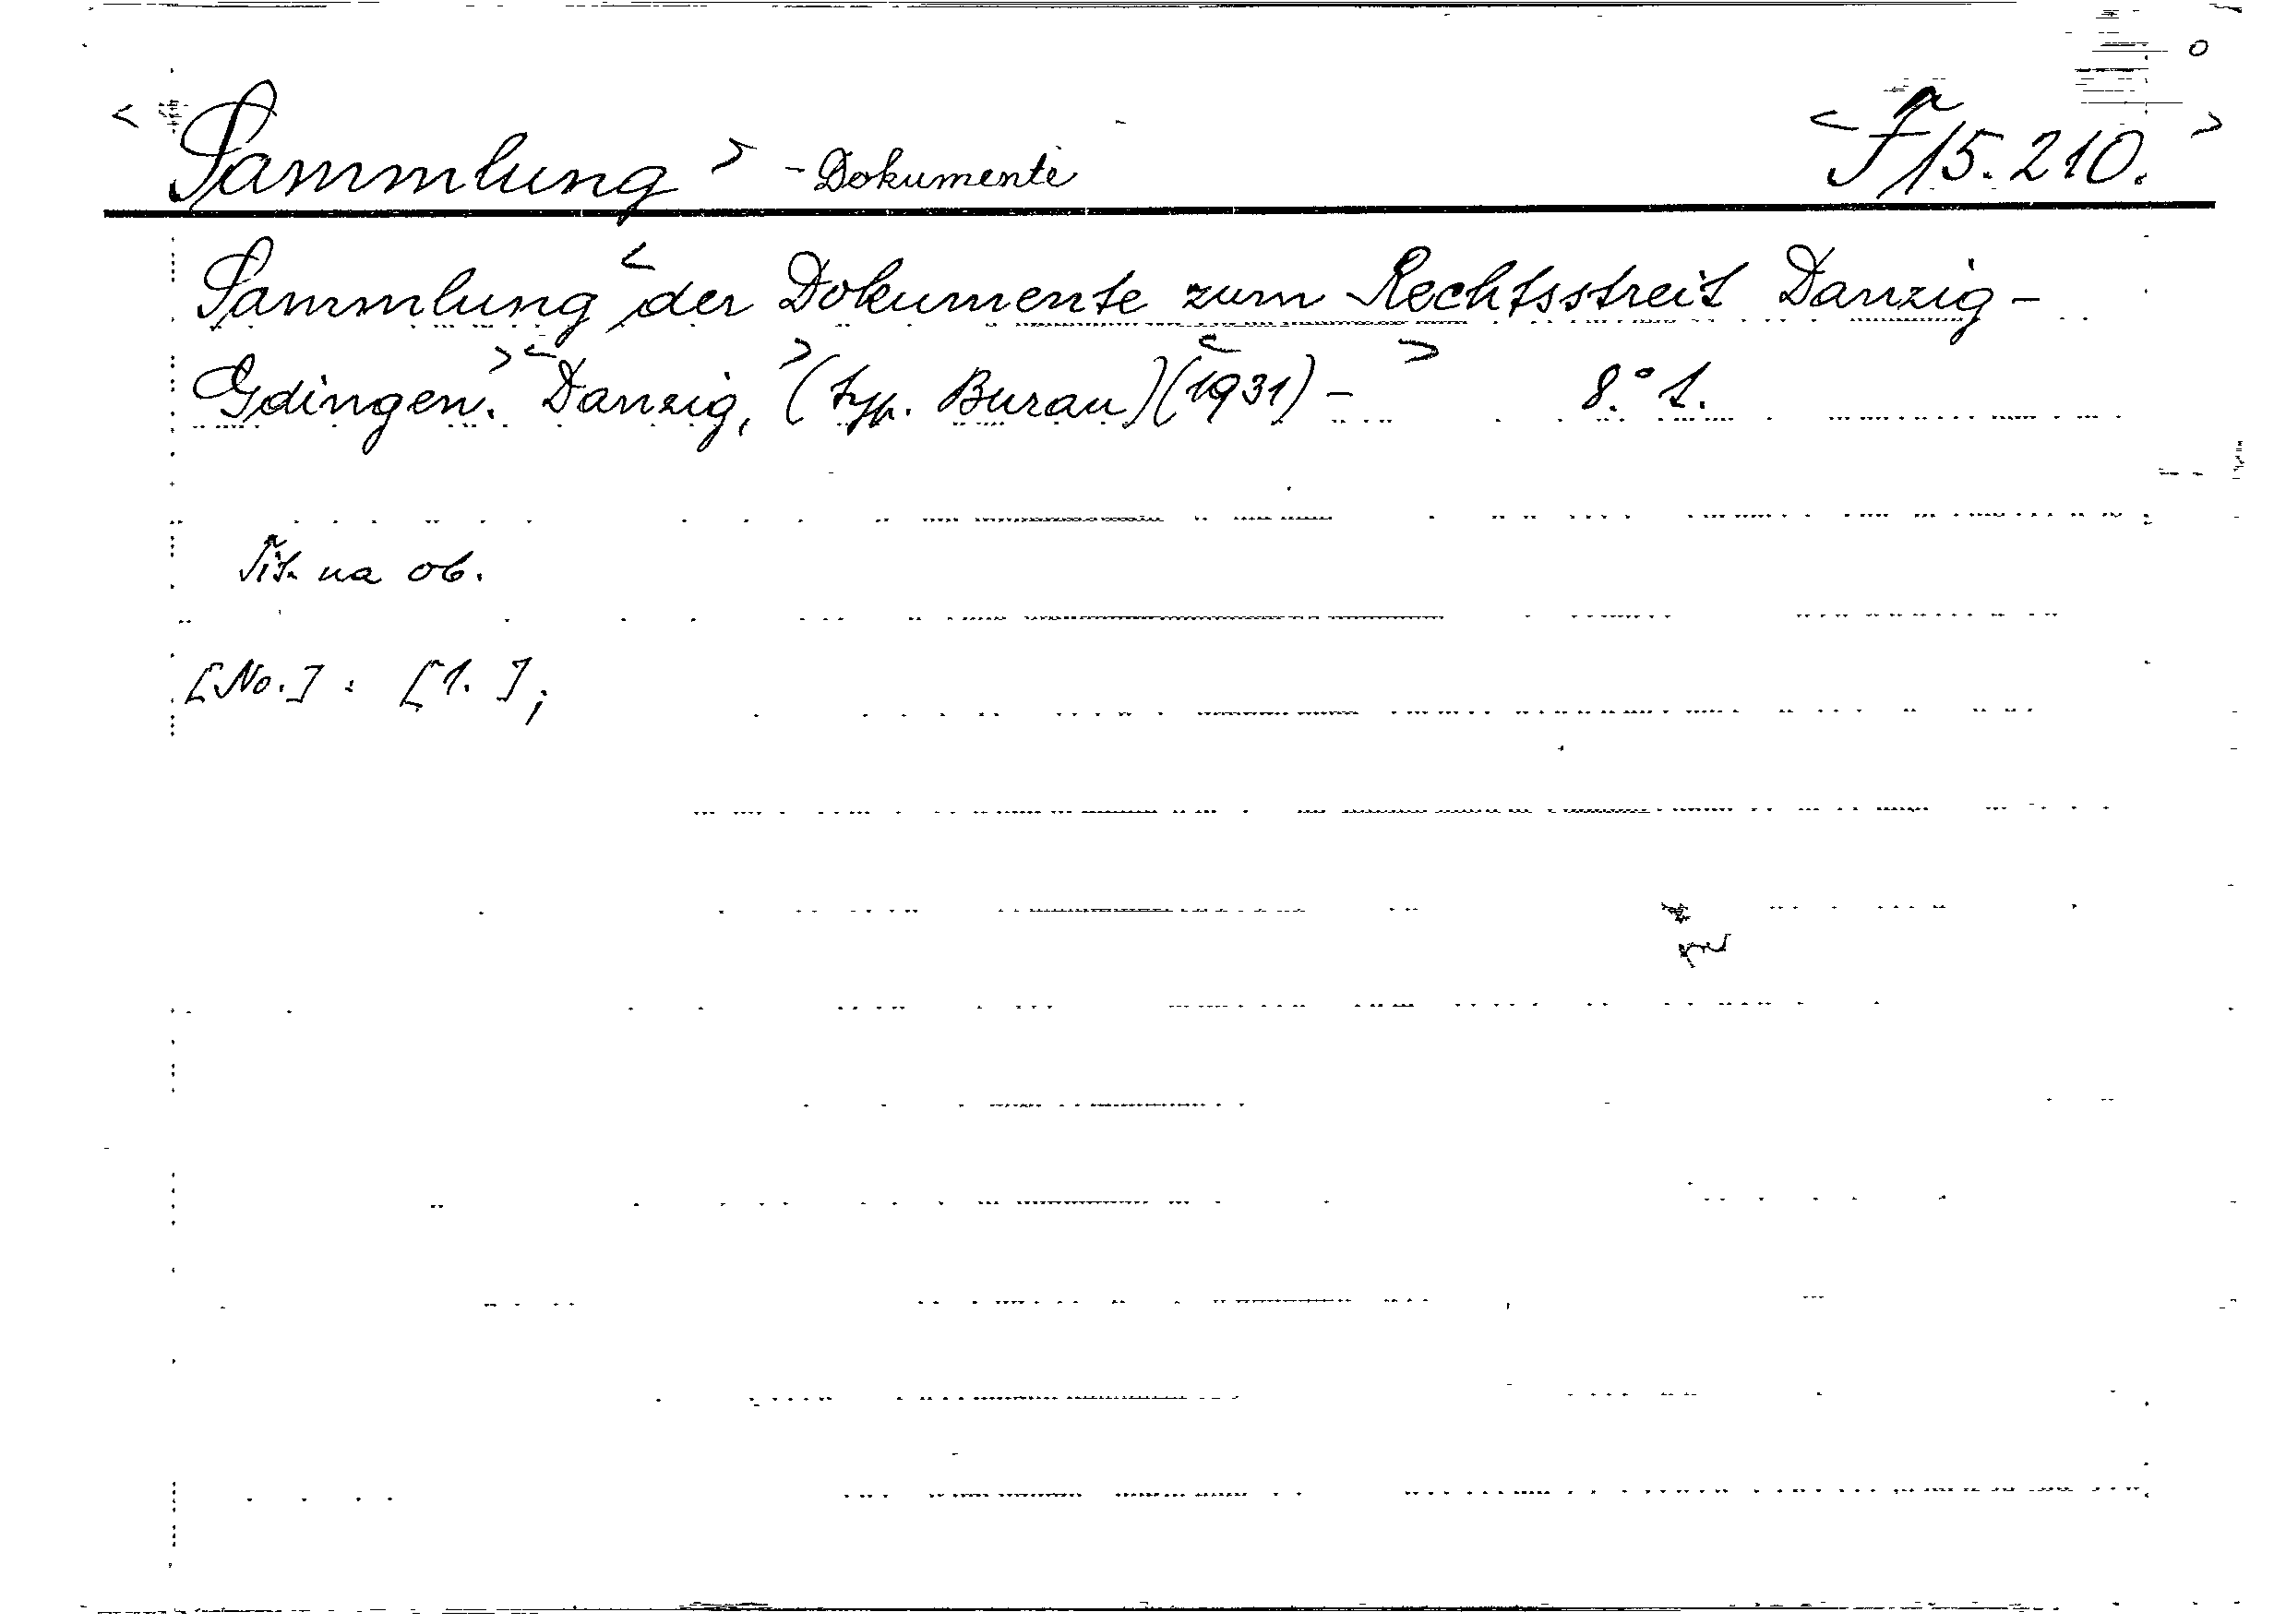 < Sammlung > - Dokumente < F 15.210. >
Sammlung < der Dokumente zum Rechtsstreit Danzig -
Gdingen. > < Danzig, > (typ. Burau) < (1931) - > 8.° 1.
Tit. na ob.
[No.] : [1.] ;